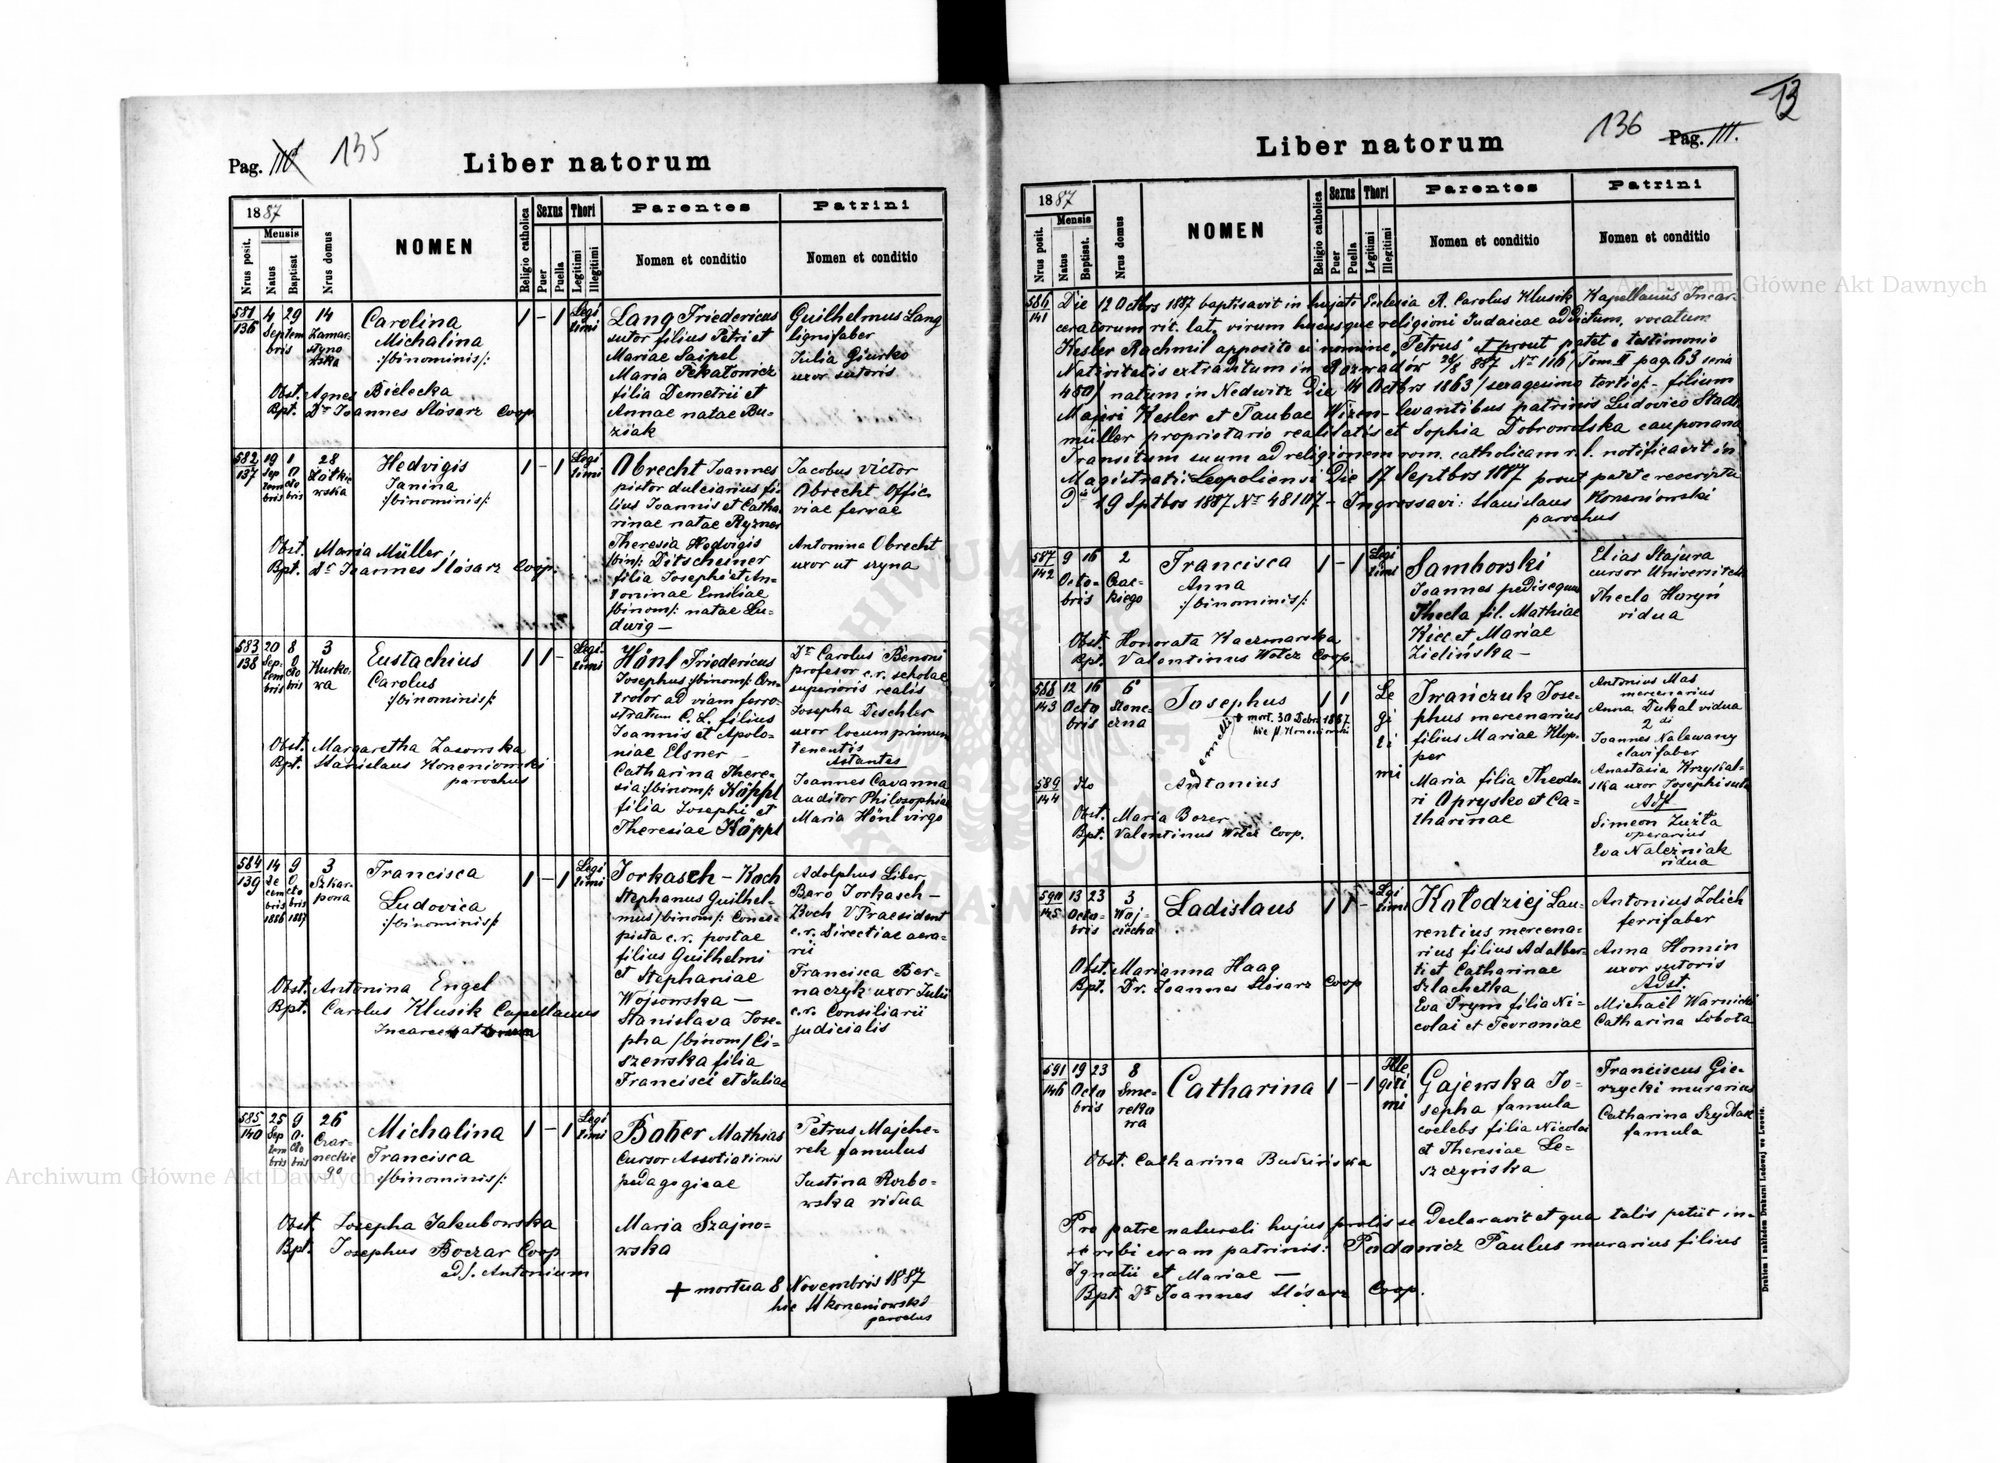 Pag. 135
Liber natorum
1887
Mensis
Nrus posit.
Natus
Baptisat
Nrus domus
NOMEN
Religio catholica
Sexus
Puer
Puella
Thori
Legitimi
Illegitimi
Parentes
Nomen et conditio
Patrini
Nomen et conditio
581
136
4 29
Septem
bris
14
Zamar-
styno
wska
Carolina
Michalina
:/binominis/:
Obst. Agnes Bielecka
Bpt. Dr Joannes Slósarz Coop.
1 – 1
Legi
timi
Lang Friedericus
sutor filius Petri et
Mariae Saipel
Maria Pekatowicz
filia Demetrii et
Annae natae Bu-
ziak
Guilhelmus Lang
lignifaber
Julia Giurko
uxor sutoris
582
137
19 1
Sep
tem
bris
O
cto
bris
28
Żółkie
wska
Hedvigis
Janina
:/binominis/:
Obst. Maria Müller
Bpt. Dr Joannes Slósarz Coop.
1 – 1
Legi
timi
Obrecht Joannes
pistor dulciarius fi-
lius Joannis et Catha-
rinae natae Ryzner
Theresia Hedvigis
/bin/: Ditscheiner
filia Josephi et An-
toninae Emiliae
/binom/: natae Lu-
dwig —
Jacobus Victor
Obrecht Offic.
viae ferrae
Antonina Obrecht
uxor ut supra
583
138
20 8
Sep-
tem
bris
O
cto
bris
3
Kurko-
wa
Eustachius
Carolus
:/binominis/:
Obst. Margaretha Zasowska
Bpt. Stanislaus Honeniowski
parochus
1 1 –
Legi-
timi
Hönl Friedericus
Josephus /binom/: Con-
trolor ad viam ferro-
stratam C. L. filius
Joannis et Apolo-
niae Elsner —
Catharina There-
sia :/binom/: Höppl
filia Josephi et
Theresiae Köppl
Dr Carolus Benoni
profesor c.r. scholae
superioris realis
Josepha Deschler
uxor locum primum
tenentis
Astantes
Joannes Cavanna
auditor Philosophiae
Maria Hönl virgo
584
139
14 9
De
cem
bris
1886
O
cto
bris
1887
3
Szkar-
powa
Francisca
Ludovica
:/binominis/:
Obst. Antonina Engel
Bpt. Carolus Klusik Capellanus
Incarceratorum
1 – 1
Legi
timi
Jorkasch – Koch
Stephanus Guilhel-
mus /binom/: Conci-
pista c.r. postae
filius Guilhelmi
et Stephaniae
Wójsowska —
Stanislava Jose-
pha /binom/ Ci-
szewska filia
Francisci et Juliae
Adolphus Liber
Baro Jorkasch –
Koch V Praesident
c.r. Directiae aera-
rii
Francisca Ber-
naczyk uxor Julii
c.r. Consiliarii
judicialis
585
140
25 9
Sep
tem
bris
O.
cto
bris
26
Czar-
neckie
go
Michalina
Francisca
:/binominis/:
Obst. Josepha Jakubowska
Bpt. Josephus Boczar Coop
ad S. Antonium
1 – 1
Legi
timi
Bober Mathias
Cursor Assotiationis
pedagogicae
Maria Szajno-
wska
Petrus Majche-
rek famulus
Justina Rozbo-
wska vidua
+ mortua 8 Novembris 1887
hic St Honeniowski
parochus
13
136 Pag. 111.
Liber natorum
1887
Mensis
Nrus posit.
Natus
Baptisat.
Nrus domus
NOMEN
Religio catholica
Sexus
Puer
Puella
Thori
Legitimi
Illegitimi
Parentes
Nomen et conditio
Patrini
Nomen et conditio
586
141
Die 12 Octbrs 1887 baptisavit in hujate Ecclesia R. Carolus Klusik Kapellanus Incar-
ceratorum rit. lat. virum hucusque religioni Judaicae addictum, vocatum
Kesler Rachmil apposito ei nomine „Petrus” et prout patet e testimonio
Nativitatis extraditum in Rozwadów 28/8 887 Nr 116/ Tom II pag. 63 seria
450/ natum in Nedwitz Die 14 Octbrs 1863 /sexagesimo tertio/:- filium
Majeri Kesler et Taubae Wizen – levantibus patrinis Ludovico Stadt-
müller proprietario realitatis et Sophia Dobrowolska cauponana
Transitum suum ad religionem rom. catholicam r. l. notificavit in
Magistrati Leopoliensi Die 17 Septbos 1887 prout patet e rescripto
Dto 19 Sptbos 1887 Nr 48107 – Ingrossavi: Stanislaus Honeniowski
parochus
587
142
9 16
Octo-
bris
2
Czac-
kiego
Francisca
Anna
:/binominis/:
Obst. Honorata Kaczmarska
Bpt. Valentinus Wołcz Coop.
1 – 1
Legi
timi
Samborski
Joannes pedisequus
Thecla fil. Mathiae
Kicz et Mariae
Zielińska —
Elias Stajura
cursor Universitatis
Thecla Haryn
vidua
588
143
12 16
Octo
bris
6
Słone-
czna
Josephus
+ mort. 30 Debr 1887.
hic St Honeniowski
gemelli
1 1
Le
gi
ti
mi
Iwańczuk Jose-
phus mercenarius
filius Mariae Klop-
per
Maria filia Theodo-
ri Oprysko et Ca-
tharinae
Antonius Mas
mercenarius
Anna Dukal vidua
2di
Joannes Nalewany
clavifaber
Anastasia Krzykal-
ska uxor Josephi sutoris
Adst.
Simeon Zuzta
operarius
Eva Nalezniak
vidua
589
144
dto
Antonius
Obst. Maria Bozer
Bpt. Valentinus Wołcz Coop.
590
145
13 23
Octo-
bris
3
Woj-
ciecha
Ladislaus
Obst. Marianna Haag
Bpt. Dr. Joannes Slósarz Coop
1 1 –
Legi
timi
Kołodziej Lau-
rentius mercena-
rius filius Adalber-
ti et Catharinae
Szlachetka
Eva Prym filia Ni-
colai et Fevroniae
Antonius Zolich
ferrifaber
Anna Homin
uxor sutoris
Adst.
Michaël Warnicki
Catharina Sobota
591
146
19 23
Octo
bris
8
Sme-
reko
wa
Catharina
Obst. Catharina Budzinowa
1 – 1
Ille
giti
mi
Gajewska Jo-
sepha famula
coelebs filia Nicolai
et Theresiae Le-
szczyńska
Franciscus Gie-
rzycki murarius
Catharina Szydłak
famula
Pro patre naturali hujus prolis se declaravit et qua talis petiit in-
scribi coram patrinis: Padowicz Paulus murarius filius
Ignatii et Mariae —
Bpt. Dr Joannes Slósarz Coop.
Drukiem i nakładem Drukarni Ludowej we Lwowie.
Archiwum Główne Akt Dawnych
Archiwum Główne Akt Dawnych